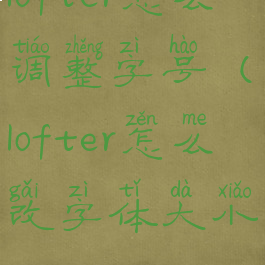 lofter怎么
tiáo zhěng zì hào
调整字号(
zěn me
lofter怎么
gǎi zì tǐ dà xiǎo
改字体大小